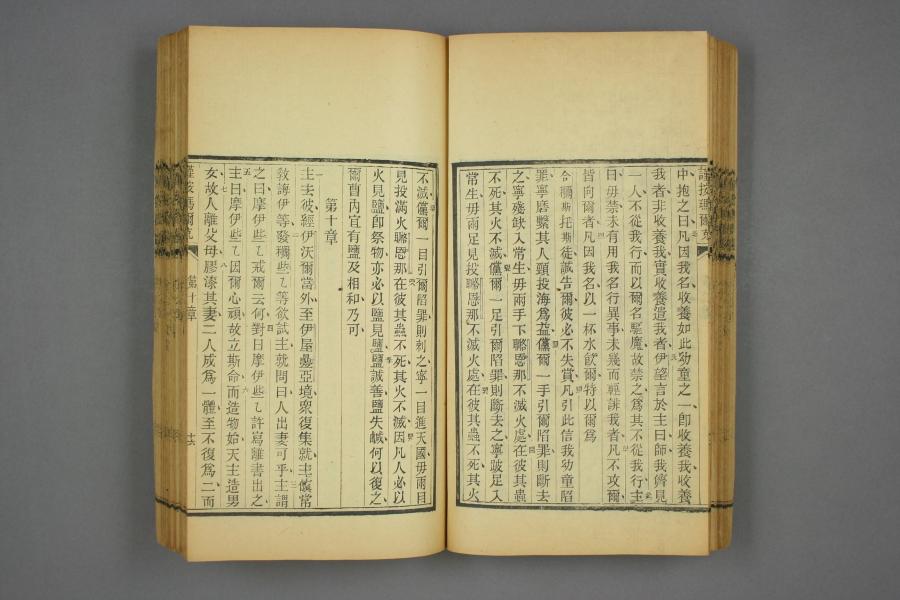 謹按瑪爾克
中抱之曰凡因我名收養如此幼童之一卽收養我收養
我者非收養我實收養遣我者伊望言於主曰師我儕見
一人不從我行而以爾名驅魔故禁之爲其不從我行主
曰毋禁未有用我名行異事未幾而輕誹我者凡不攻爾
皆向爾者凡因我名以一杯水飮爾特以爾爲
合㒆斯托斯徒誠告爾彼必不失賞凡引此信我幼童陷
罪寧磨繫其人頸投海爲益儻爾一手引爾陷罪則斷去
之寧殘缺入常生毋兩手下聮恩那不滅火處在彼其蟲
不死其火不滅儻爾一足引爾陷罪則斷去之寧跛足入
常生毋兩足見投聮恩那不滅火處在彼其蟲不死其火
不滅儻爾一目引爾陷罪則刺之寧一目進天國毋兩目
見投滿火聮恩那在彼其蟲不死其火不滅因凡人必以
火見鹽卽祭物亦必以鹽見鹽鹽誠善鹽失鹹何以復之
爾曹內宜有鹽及相和乃可
第十章
主去彼經伊沃爾當外至伊屋疊亞境衆復集就主主慎常
敎誨伊等發穪些乙等欲試主就問曰人出妻可乎主謂
之曰摩伊些乙戒爾云何對曰摩伊些乙許寫離書出之
主曰摩伊些乙因爾心頑故立斯命而造物始天主造男
女故人離父母膠漆其妻二人成爲一體至不復爲二而
謹按瑪爾克 第十章